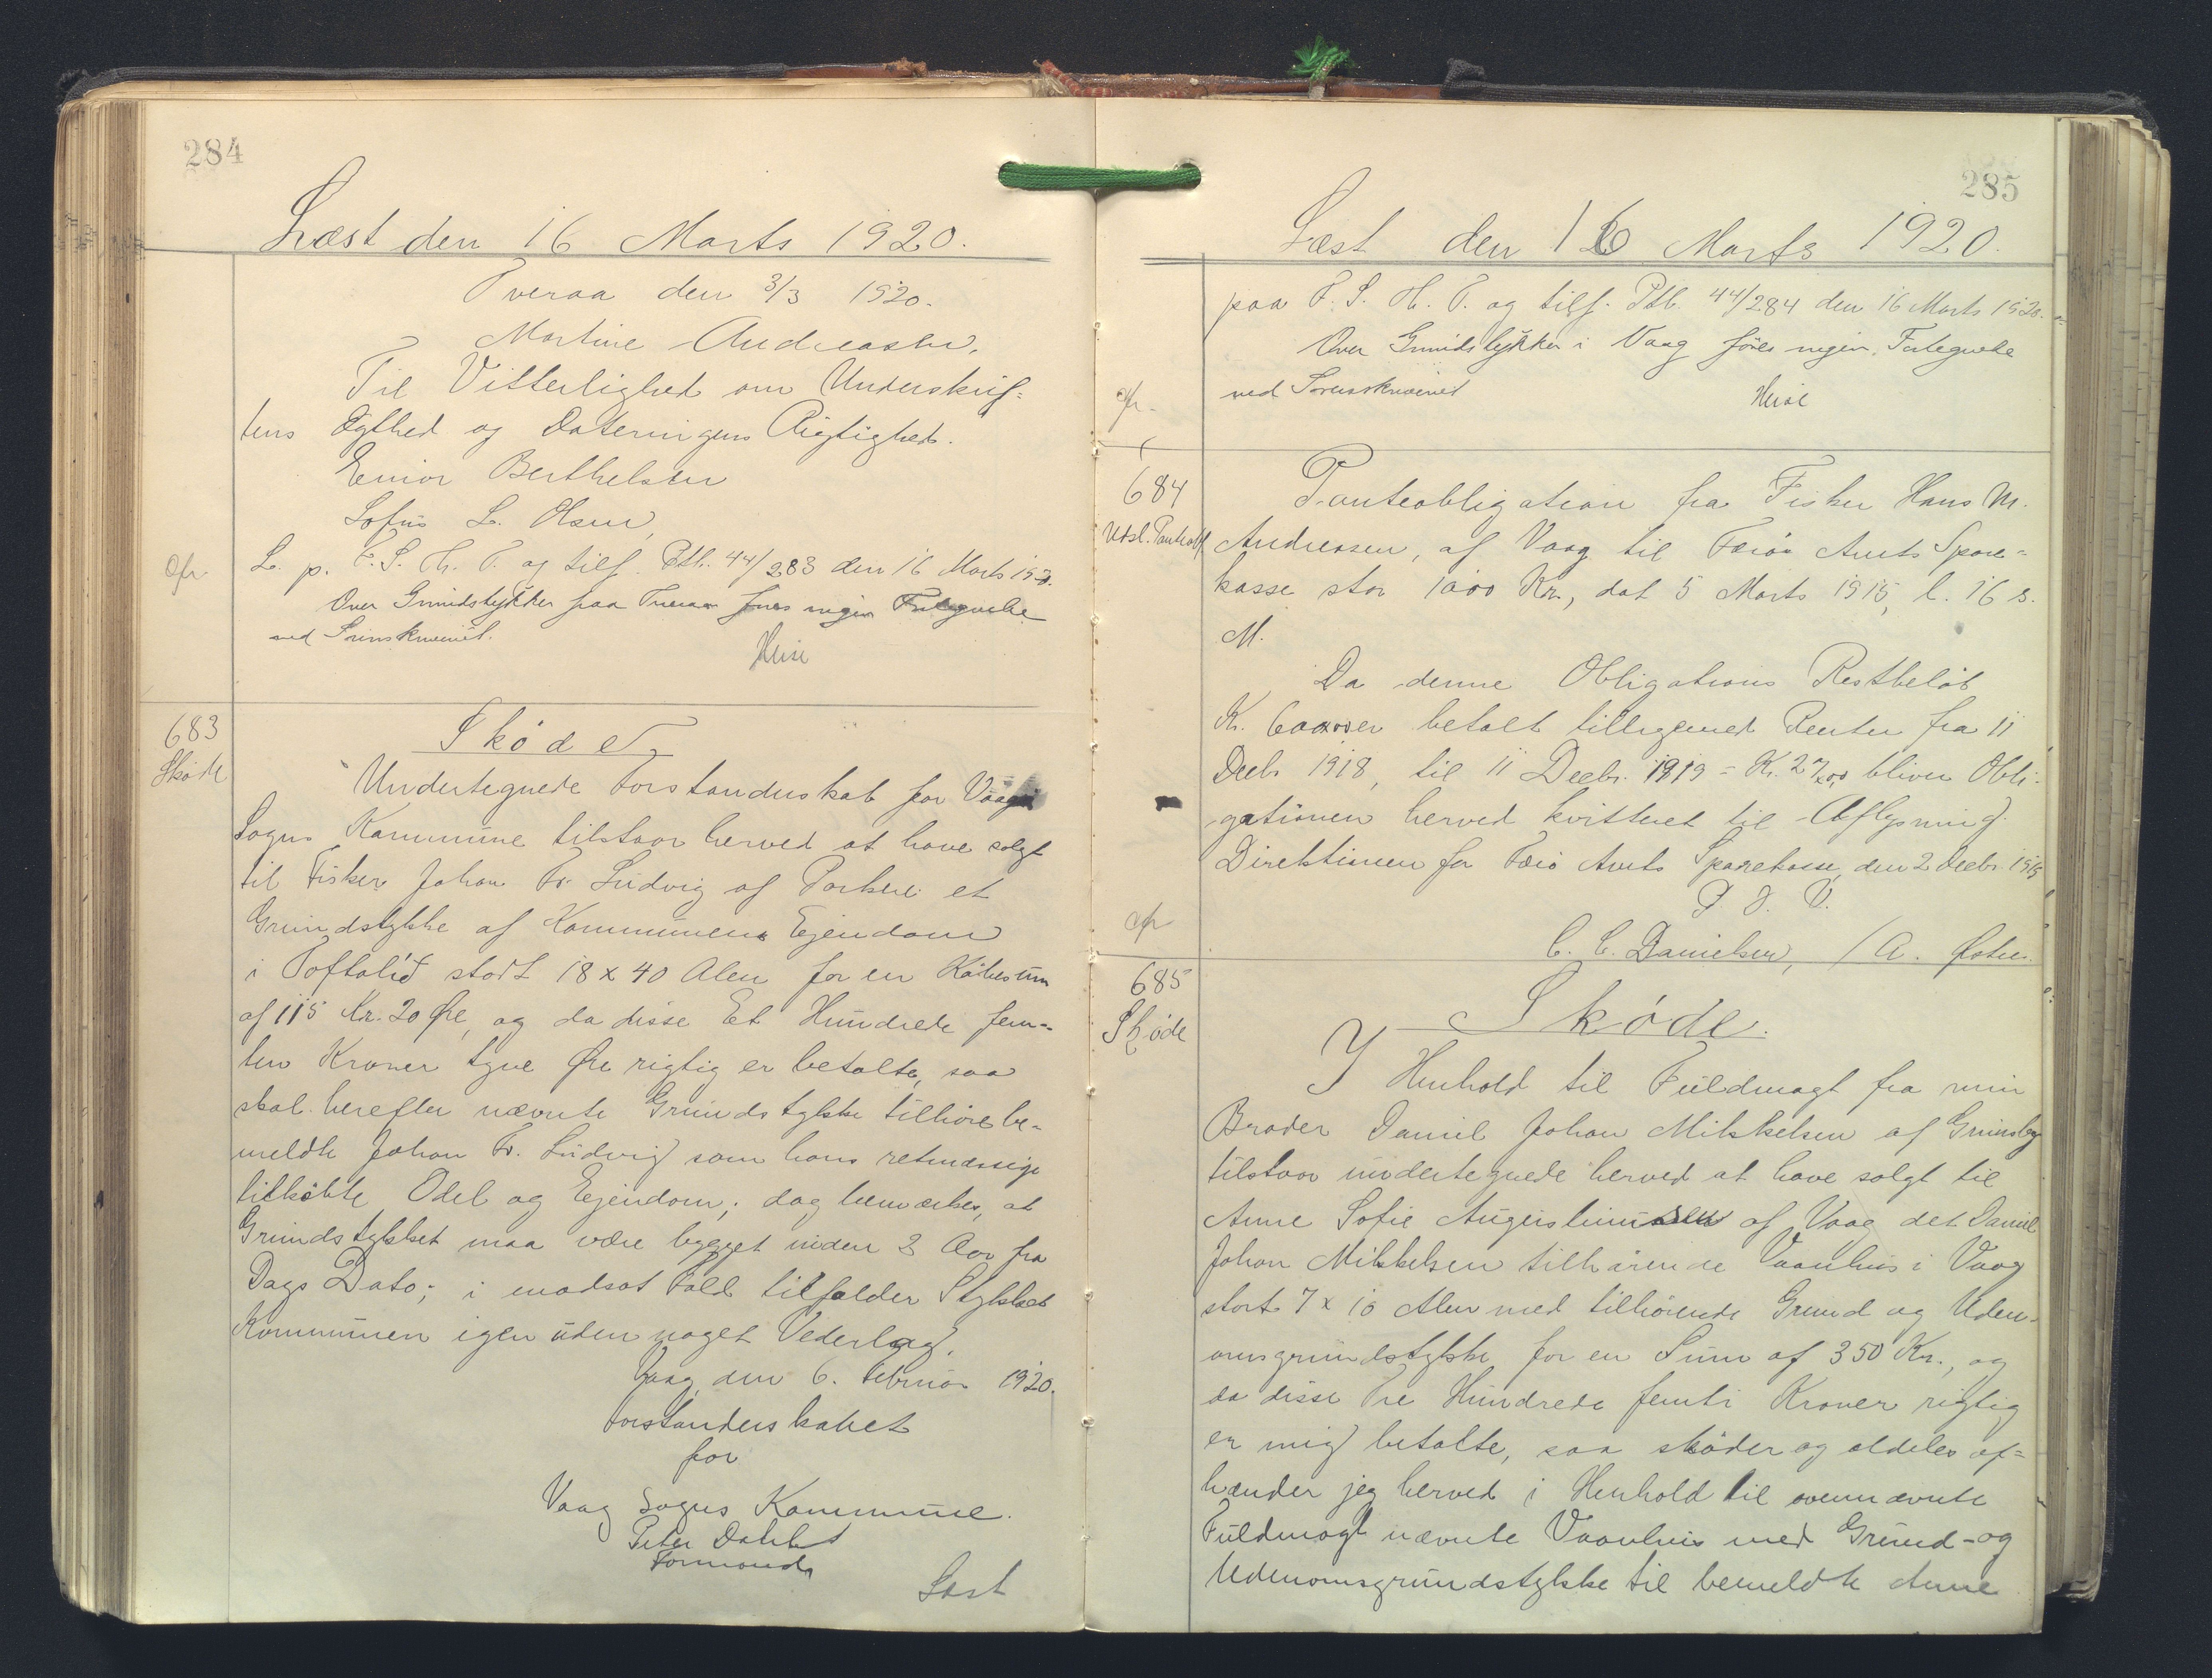 284
Læst den 16 Marts 1920.
Tveraa den 3/3 1920.
Martine Andreasen.
Til Vitterlighed om Underskrif-
tens Ægthed og Dateringens Rigtighed.
Berthelsen
Sofus L. Olsen,
cfr.
L. p. F. S. Th. T. og tilf. Ptb. 44/283 den 16 Marts 1920.
Over Grundstykker paa Tveraa føres ingen Fortegnelse
ved Sorenskriveriet.
Heise
683
Skøde
Skøde
Undertegnede Forstanderskab for Vaag
Sogns Kommune tilstaar herved at have solgt
til Fisker Johan Fr. Ludvig af Porkere et
Grundstykke af Kommunens Ejendom
i stort 18 x 40 Alen for en Købesum
af 115 Kr. 20 Øre, og da disse Et Hundrede fem-
ten Kroner tyve Øre rigtig er betalte, saa
skal herefter nævnte Grundstykke tilhøre be-
meldte Johan Fr. Ludvig som hans retmæssige
tilkøbte Odel og Ejendom; dog bemærkes, at
Grundstykket maa være bygget inden 3 Aar fra
Dags Dato; i modsat Fald tilfalder Stykket
Kommunen igen uden noget Vederlag.
Vaag, den 6. Februar 1920.
Forstanderskabet
for
Vaag Sogns Kommune.
Peter Dahl
Formand
Læst
285
Læst den 16 Marts 1920.
paa F. S. Th. T. og tilf. Ptb. 44/284 den 16 Marts 1920.
Over Grundstykker i Vaag føres ingen Fortegnelse
cfr.
ved Sorenskriveriet
Heise
684
Udsl. Panteobl.
Panteobligation fra Fisker Hans M.
Andreasen, af Vaag til Færøe Amts Spare-
kasse stor 1000 Kr., dat 5 Marts 1915, l. 16 s.
M.
Da denne Obligations Restbeløb
Kr. 600,00 er betalt tilligemed Renter fra 11
Decbr 1918, til 11 Decbr. 1919 = Kr. 27,00 bliver Obli-
gationen herved kvitteret til Aflysning.
Direktionen for Færø Amts Sparekasse, den 2 Decbr. 1919
P. D. V.
cfr
C. C. Danielsen, / A.
685
Skøde
Skøde.
I Henhold til Fuldmagt fra min
Broder Daniel Johan Mikkelsen af Grimsby
tilstaar undertegnede herved at have solgt til
Anne Sofie Augustinussen af Vaag det Daniel
Johan Mikkelsen tilhørende Vaanhus i Vaag
stort 7 x 10 Alen med tilhørende Grund og Uden-
omsgrundstykke for en Sum af 350 Kr., og
da disse Tre Hundrede femti Kroner rigtig
er mig betalte, saa skøder og aldeles af-
hænder jeg herved i Henhold til ovennævnte
Fuldmagt nævnte Vaanhus med Grund- og
Udenomsgrundstykke til bemeldte Anne